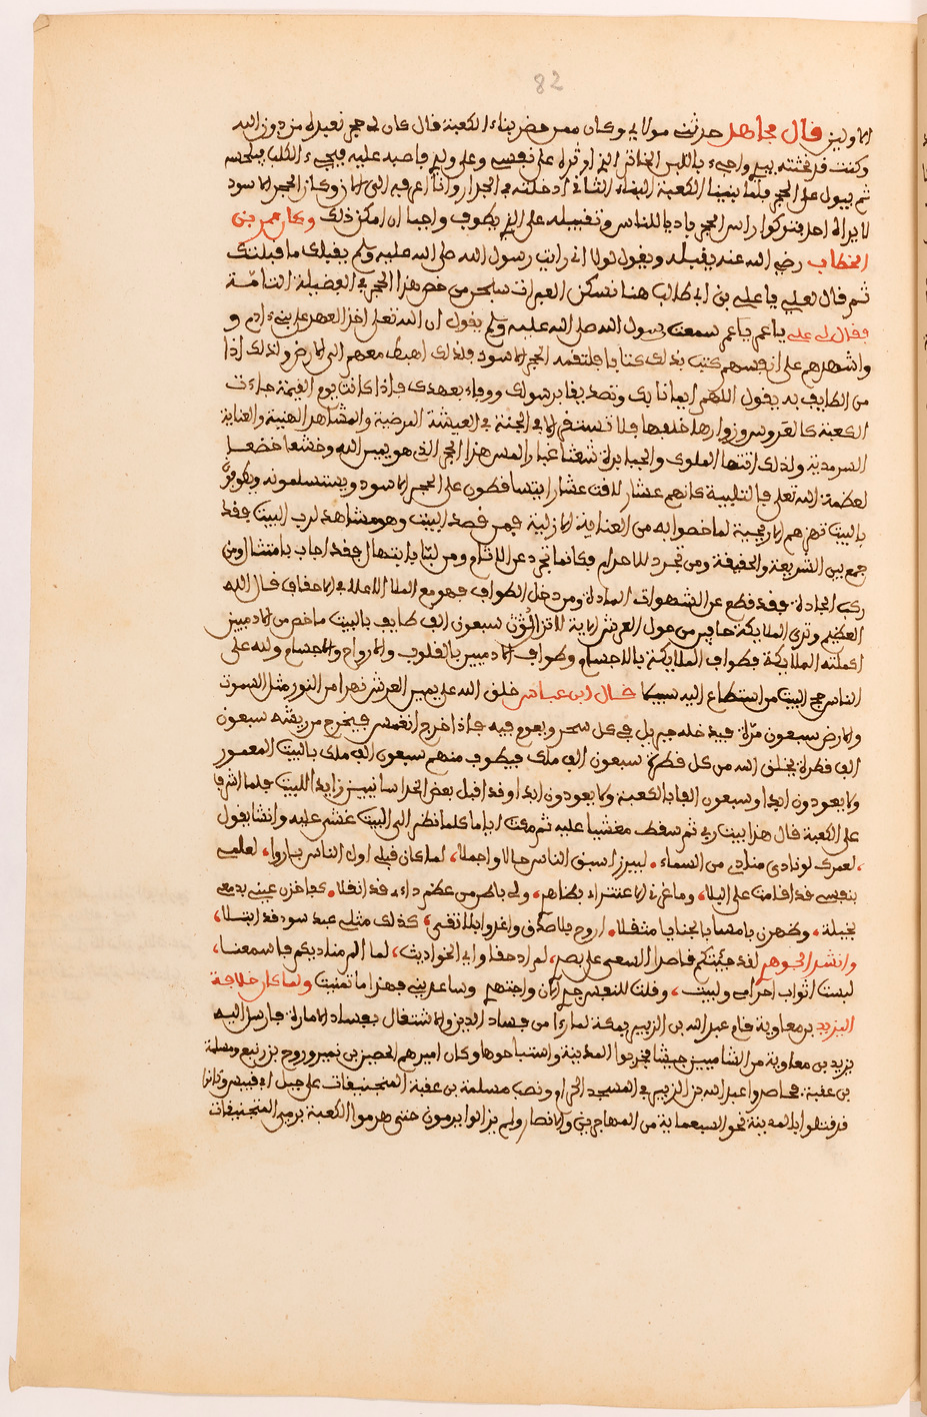 82
الاولين قال مجاهد حدثت مولاي وكان ممن حضر بناء الكعبة قال كان لي حجر نعبده من دون الله
وكنت قد نحته بيدي واجيء باللبن الخاثر الذي اوثره على نفسي وعلى ولدي فاصبه عليه فيجيء الكلب فيلحسه
ثم يبول على الحجر فلما بنينا الكعبة البناء الثاني ادخلته في الجدار وانا اعرفه الى الان وكان الحجر الاسود
لا يراه احد فتركوا راس الحجر باديا للناس وتقبيله على الذي يطوف واجبا ان امكن ذلك وكان عمر بن
الخطاب رضي الله عنه يقبله ويقول لولا اني رايت رسول الله صلى الله عليه وسلم يقبلك ما قبلتك
ثم قال لعلي يا علي بن ابي طالب هنا تسكن العبرات سلحر من خص هذا الحجر في الفضيلة التامة
فقال لي علي يا عم يا عم سمعت رسول الله صلى الله عليه وسلم يقول ان الله تعلى اخذ العهد على بنيء ادم و
واشهدهم على انفسهم كتب بذلك كتابا فلتقمه الحجر الاسود فلذلك اهبط معهم الى الارض ولذلك اذا
من الطايف به يقول اللهم ايمانا بك وتصديقا برسولك ووفاء بعهدك فاذا كانت يوم القيمة جاءت
الكعبة كالعروس وزوارها خلفها فلا تستقر الا في الجنة في العيشة المرضية والمشاهد الهنية والعناية
السرمدية ولذلك اتتها الملوك والجبابرة شعثا غبارا لمس هذا الحجر الذي هو يمين الله وخشعا خضعا
لعظمة الله تعلى فالتلبية كانهم عشار لاقت عشارا يتساقطون على الحجر الاسود ويستسلمونه ويطوفون
بالبيت تهزهم الاريحية لما خصوا به من العناية الازلية فمن قصد البيت وهو مشاهد لرب البيت فقد
جمع بين الشريعة والحقيقة ومن تجرد للاحرام فكانما تجرد عن الاثام ومن لبا بابتهال فقد اجاب بامتثال ومن
ركب الجادة فقد قطع عن الشهوات المادة ومن دخل الطواف فهو مع الملا الاعلا في الاحقاف قال الله
العظيم وترى الملايكة حافين من حول العرش الاية لا تزال سبعون الف طايف بالبيت ما خص من الادميين
اكملته الملايكة فطواف الملايكة بالاجسام وطواف الادميين بالقلوب والارواح والاجسام ولله على
الناس حج البيت من استطاع اليه سبيلا قال ابن عباس خلق الله على يمين العرش نهرا من النور مثل السموت
والارض سبعون مرة فيدخله جبريل في كل سحر ويعوم فيه فاذا خرج انغمس فيخرج من ريشه سبعون
الف قطرة يخلق الله من كل قطرة سبعون الف ملك فيطوف منهم سبعون الف ملك بالبيت المعمور
ولا يعودون ابدا وسبعون الفا بالكعبة ولا يعودون ابدا وقد اقبل بعض الخراسانيين زايدا للبيت فلما اشرف
على الكعبة قال هذا بيت ربي ثم سقط مغشيا عليه ثم مكث اياما كلما نظر الى البيت غشي عليه وانشا يقول
لعمرك لو نادى منادي من السماء لبيرز اسبق الناس حالا واجملا لما كان قبلي اول الناس بارزا لعلمي
بنفسي قد اقامت على البلا وما غرني الا اعتزاء بظاهر ولي باطن من عظم داءه قد اثقلا كما خزن عيني بدمعي
بخيلة وظهرن بامسا بالجنايا مثقلا اروح بلا صدق واغدوا بلا تقى كذلك مثلي عبد سوء قد ابتلا
وانشد الجوهر لقد جيتكم قاصدا السعى على بصر لم ار دحقا والي الحوادث لما الم مناديكم فاسمعنا
لبست اثواب احرامي ولبيت وقلت للنفس جدي الان واجتهدي وساعديني فهذا ما تمنيت ولما كان خلافة
اليزيد بن معاوية قام عبد الله بن الزبير بمكة لما رءا من فساد الدين والاشتغال بفساد الامارة فارسل اليه
يزيد بن معاوية من الشاميين جيشا فخربوا المدينة واستباحوها وكان اميرهم الحصين بن نمير وروح بن زنبع ومسلمة
بن عقبة فحاصروا عبد الله بن الزبير في المسجد الحرام ونصب مسلمة بن عقبة المنجنيقات على جبل ابي قبيس وكانوا
قد قتلوا بالمدينة نحو السبعماية من المهاجرين والانصار ولم يزالوا يرمون حتى هدموا الكعبة برمي المنجنيقات